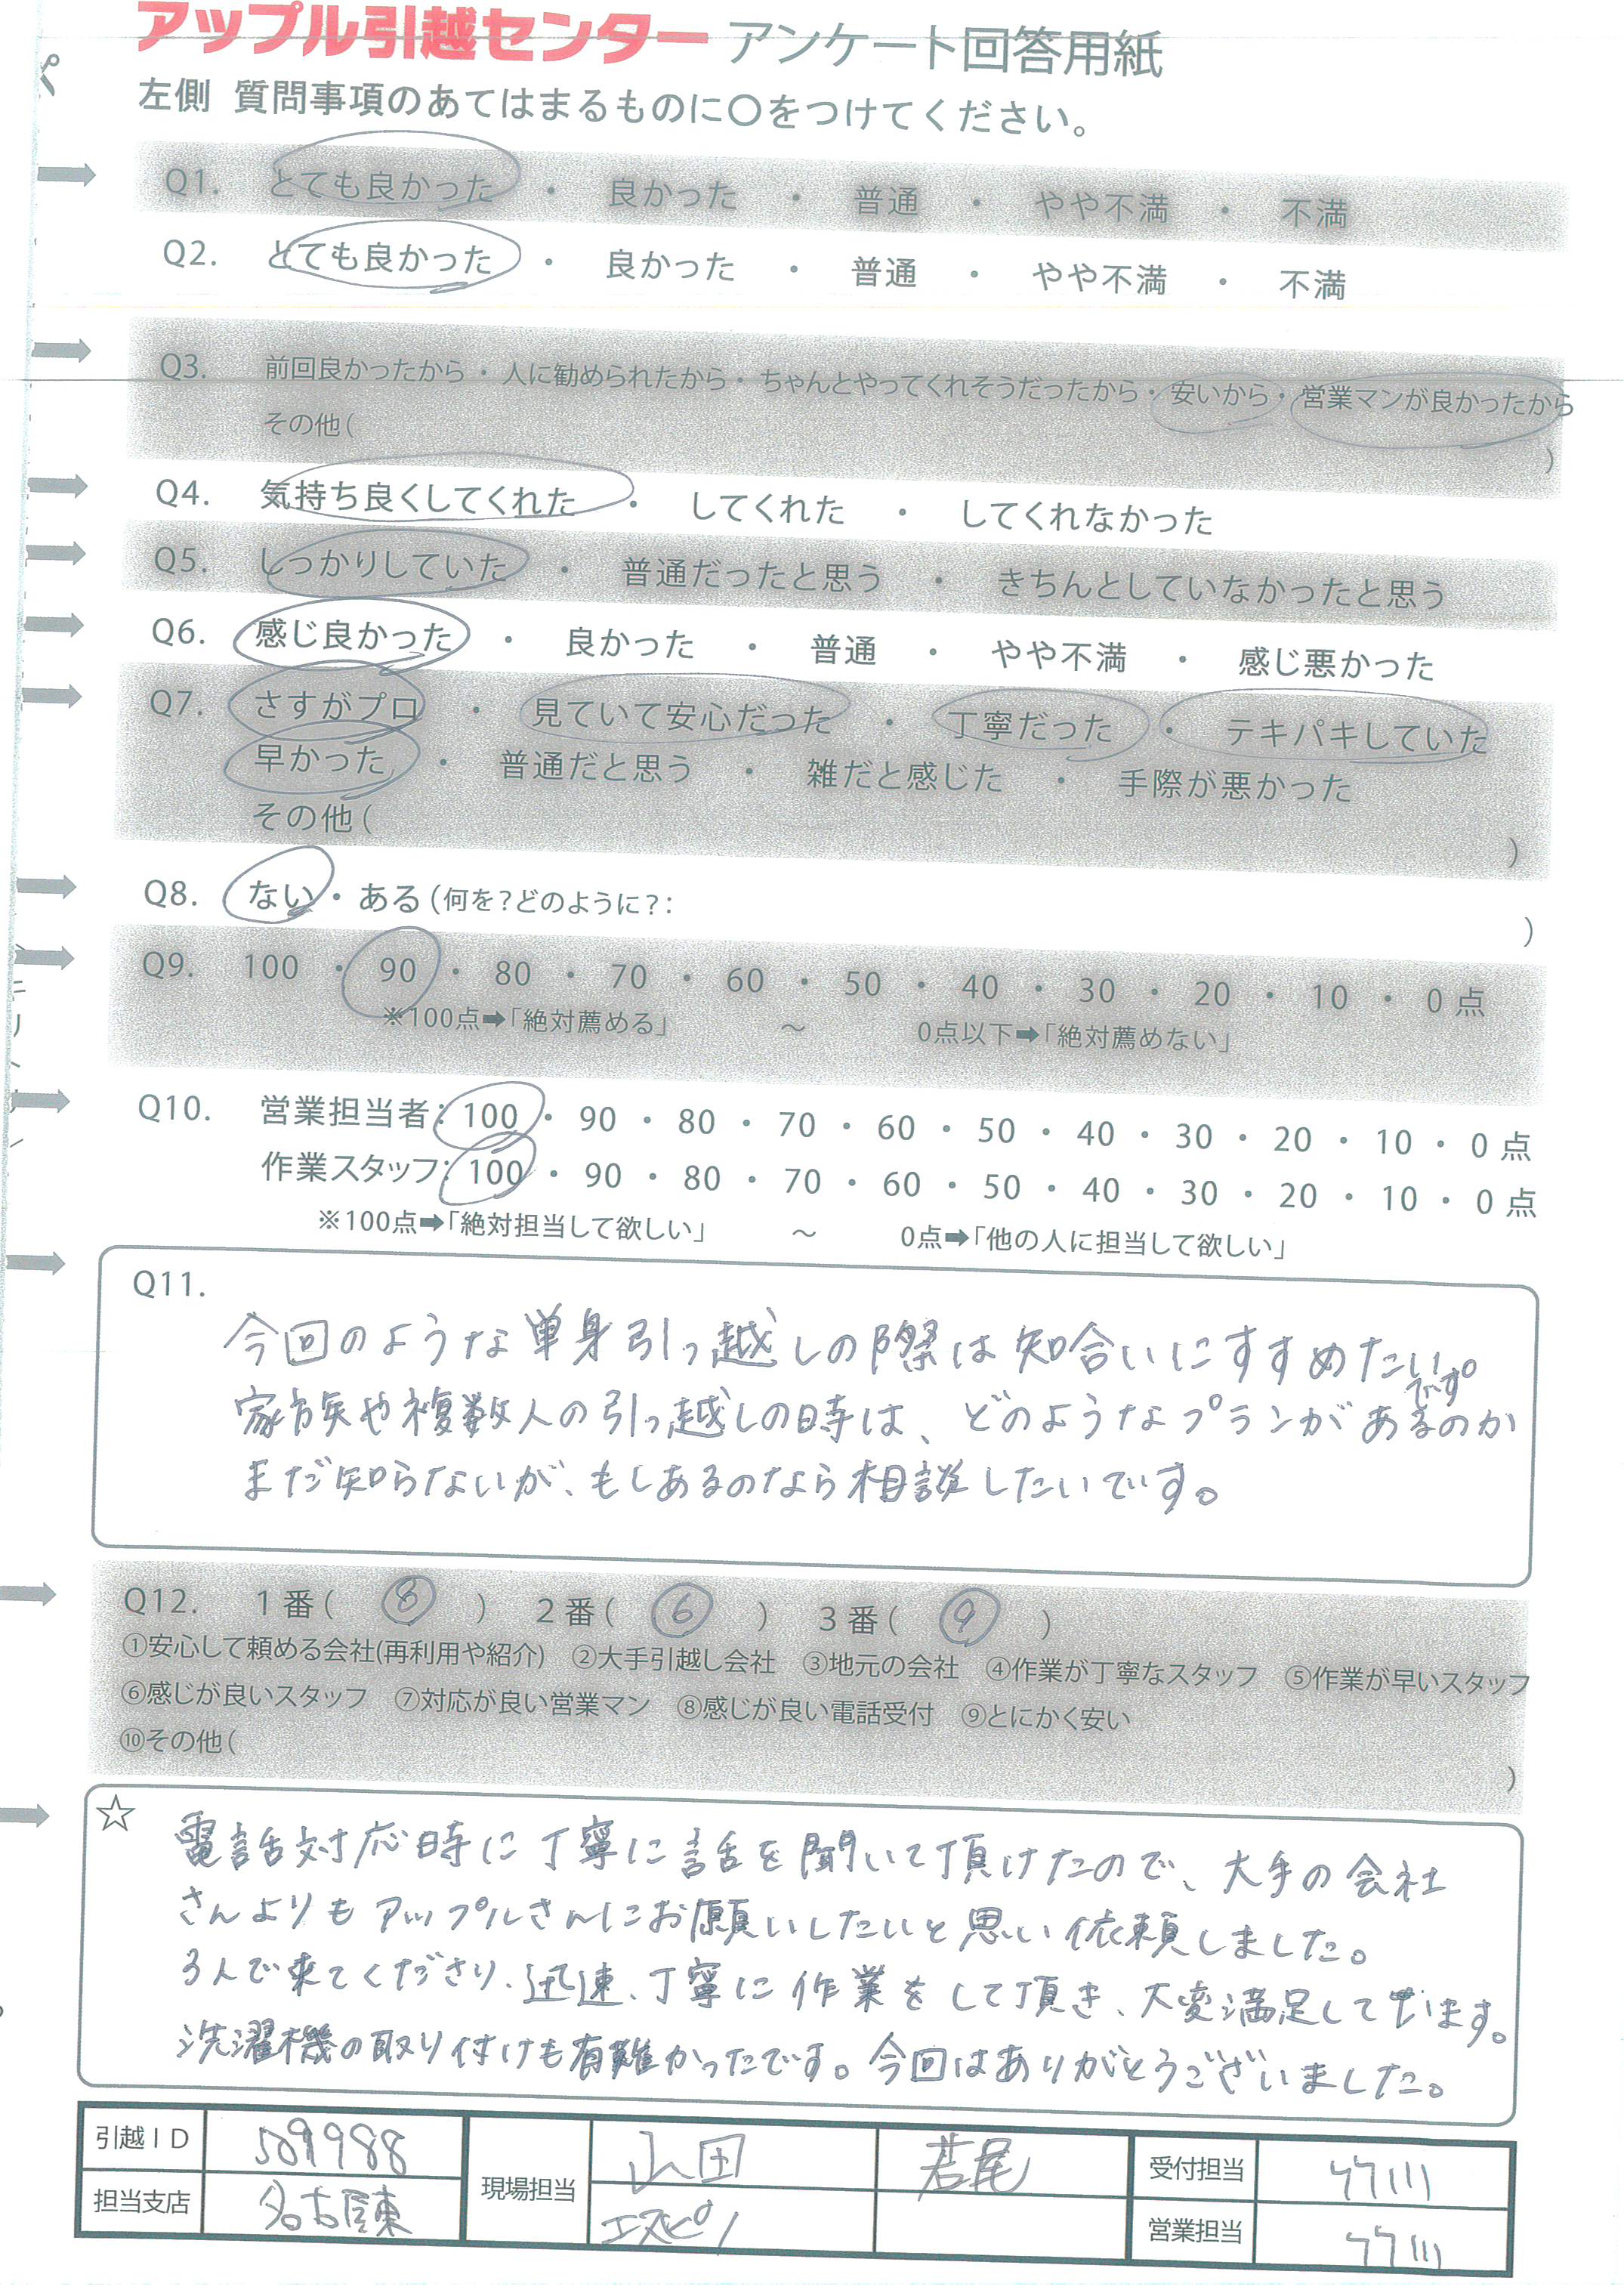 アップル引越センター アンケート回答用紙
左側 質問事項のあてはまるものに〇をつけてください。
Q1. とても良かった ・ 良かった ・ 普通 ・ やや不満 ・ 不満
Q2. とても良かった ・ 良かった ・ 普通 ・ やや不満 ・ 不満
Q3. 前回良かったから・人に勧められたから・ちゃんとやってくれそうだったから・安いから・営業マンが良かったから
その他( )
Q4. 気持ち良くしてくれた ・ してくれた ・ してくれなかった
Q5. しっかりしていた ・ 普通だったと思う ・ きちんとしていなかったと思う
Q6. 感じ良かった ・ 良かった ・ 普通 ・ やや不満 ・ 感じ悪かった
Q7. さすがプロ ・ 見ていて安心だった ・ 丁寧だった ・ テキパキしていた
早かった ・ 普通だと思う ・ 雑だと感じた ・ 手際が悪かった
その他( )
Q8. ない・ある(何を?どのように?: )
Q9. 100 ・ 90 ・ 80 ・ 70 ・ 60 ・ 50 ・ 40 ・ 30 ・ 20 ・ 10 ・ 0点
※100点➡「絶対薦める」 ~ 0点以下➡「絶対薦めない」
Q10. 営業担当者:100・90・80・70・60・50・40・30・20・10・0点
作業スタッフ:100・90・80・70・60・50・40・30・20・10・0点
※100点➡「絶対担当して欲しい」 ~ 0点➡「他の人に担当して欲しい」
Q11.
今回のような単身引っ越しの際は知合いにすすめたいです。
家族や複数人の引っ越しの時は、どのようなプランがあるのか
まだ知らないが、もしあるのなら相談したいです。
Q12. 1番( ⑧ ) 2番( ⑥ ) 3番( ⑨ )
①安心して頼める会社(再利用や紹介) ②大手引越し会社 ③地元の会社 ④作業が丁寧なスタッフ ⑤作業が早いスタッフ
⑥感じが良いスタッフ ⑦対応が良い営業マン ⑧感じが良い電話受付 ⑨とにかく安い
⑩その他( )
☆ 電話対応時に丁寧に話を聞いて頂けたので、大手の会社
さんよりもアップルさんにお願いしたいと思い依頼しました。
3人で来てくださり、迅速、丁寧に作業をして頂き、大変満足してます。
洗濯機の取り付けも有難かったです。今回はありがとうございました。
引越ID 509988 現場担当 山田 若尾 受付担当
担当支店 名古屋東 エスピノ 営業担当